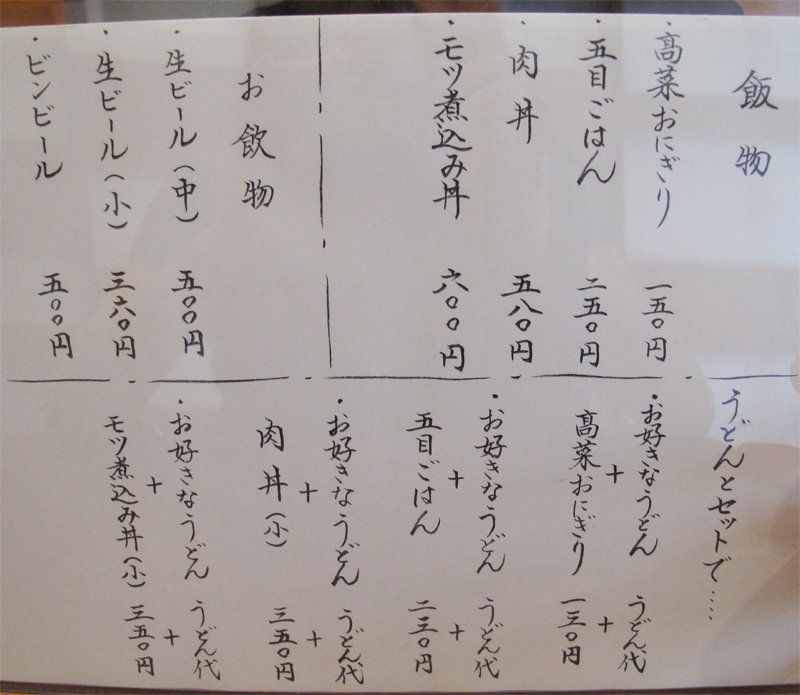 飯物
・高菜おにぎり 一五〇円
・五目ごはん 二五〇円
・肉丼 五八〇円
・モツ煮込み丼 六〇〇円
お飲物
・生ビール(中) 五〇〇円
・生ビール(小) 三六〇円
・ビンビール 五〇〇円
うどんとセットで……
・お好きなうどん うどん代
+ +
高菜おにぎり 一三〇円
・お好きなうどん うどん代
+ +
五目ごはん 二三〇円
・お好きなうどん うどん代
+ +
肉丼(小) 三五〇円
・お好きなうどん うどん代
+ +
モツ煮込み丼(小) 三五〇円